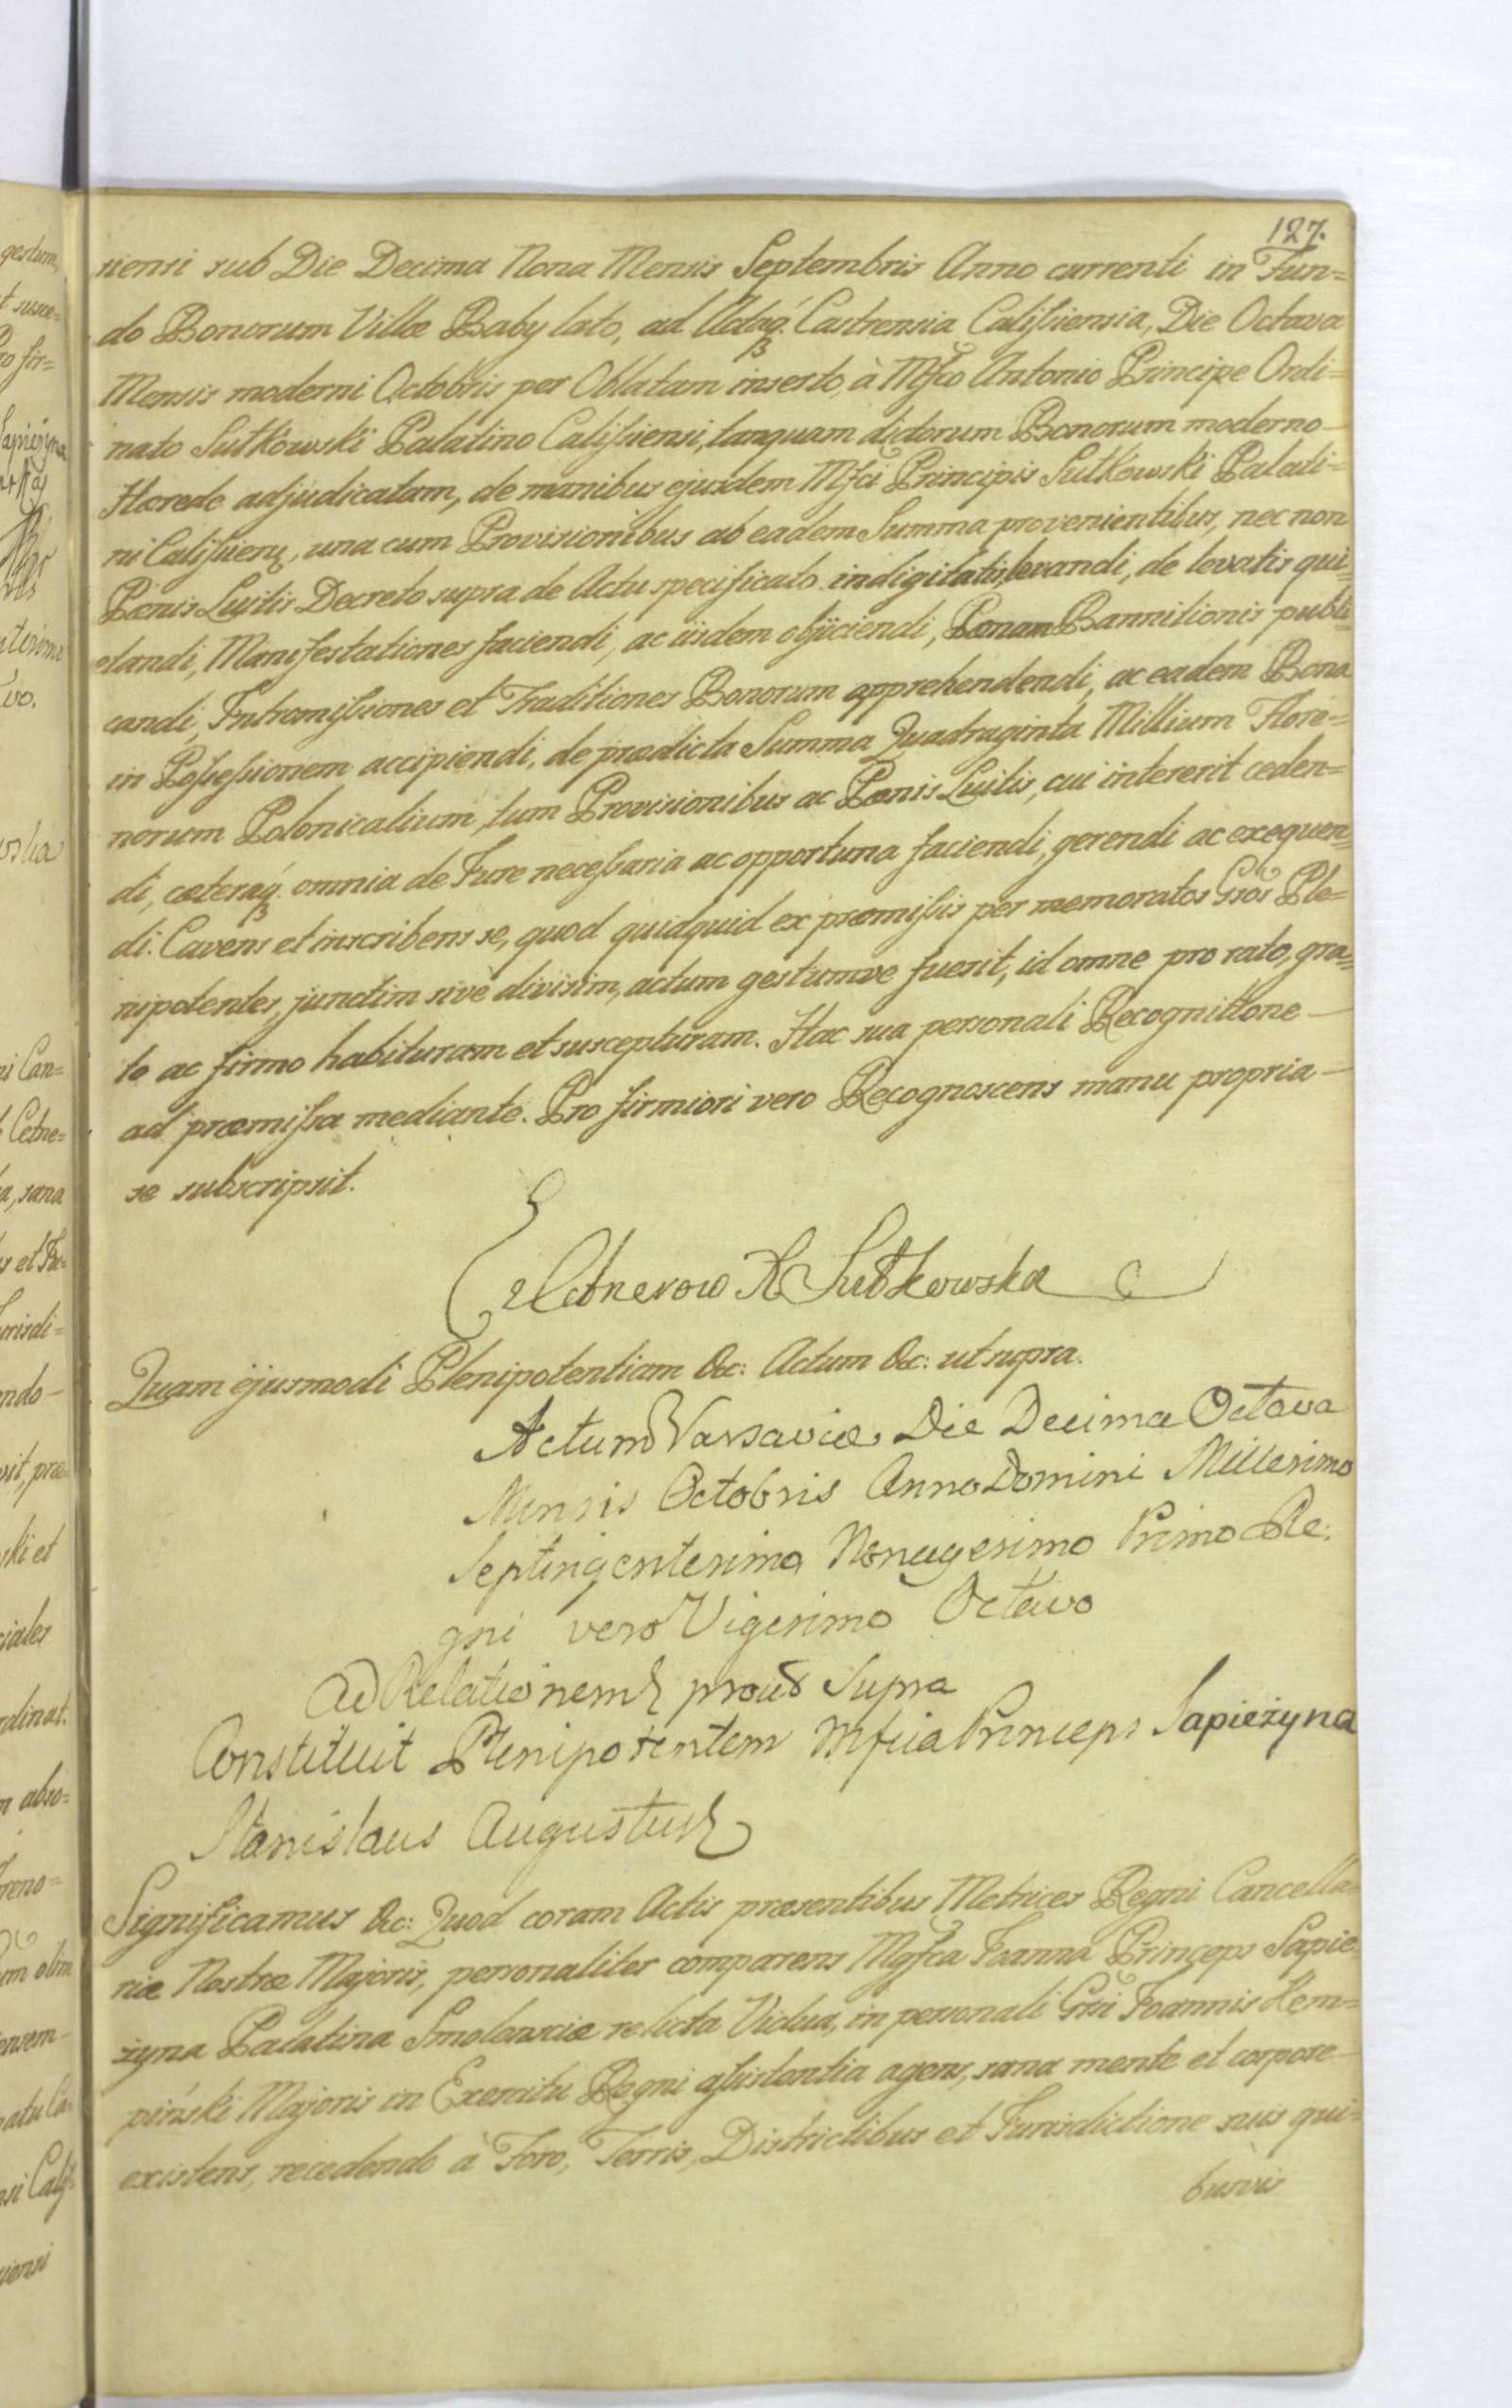 127.
niensi sub Die Decima Nona Mensis Septembris Anno currenti in Fun=
do Bonorum Villæ Baby lato, ad Actaq́. Castrensia Calissiensia, Die Octava
Mensis moderni Octobris per Oblatam inserto, à Mfco Antonio Principe Ordi=
nato Sułkowski Palatino Calissiensi, tanquam dictorum Bonorum moderno
Hærede adjudicatam, de manibus ejusdem Mfci Principis Sułkowski Palati=
ni Calissien, una cum Provisionibus ab eadem Summa provenientibus, nec non
Pænis Luitis Decreto supra de Actu specificato indigitatis, levandi, de levatis qui=
etandi, Manifestationes faciendi, ac iisdem objiciendi, Pænam Bannitionis publi=
candi, Intromissiones et Traditiones Bonorum apprehendendi, ac eadem Bona
in Possessionem accipiendi, de prædicta Summa Quadraginta Millium Flore=
norum Polonicalium, tum Provisionibus ac Pænis Luitis, cui intererit ceden=
di, cæteraq́. omnia de Jure necessaria ac opportuna faciendi, gerendi ac exequen=
di. Cavens et inscribens se, quod quidquid ex præmissis per memoratos Gsos Ple=
nipotentes, junctim sivè divisim, actum gestumve fuerit, id omne pro rato, gra=
to ac firmo habituram et suscepturam. Hac sua personali Recognitione
ad præmissa mediante. Pro firmiori vero Recognoscens manu propria
se subscripsit.
Sułkowska
Quam ejusmodi Plenipotentiam &c: Actum &c: ut supra.
Actum Varsaviæ Die Decima Octava
Mensis Octobris Anno Domini Millesimo
Septingentesimo Nonagesimo Primo Re:
gni vero Vigesimo Octavo
Ad Relationem prout Supra
Constituit Plenipotentem Mfica Princeps Sapieżyna
Stanislaus Augustus
Significamus &c: Quod coram Actis præsentibus Metrices Regni Cancella=
riæ Nostræ Majoris, personaliter comparens Mgfca Joanna Princeps Sapie=
żyna Palatina Smolensciæ relicta Vidua, in personali Gsi Joannis Kem=
piński Majoris in Exercitu Regni assistentia agens, sana mente et corpore
existens, recedendo à Foro, Terris, Districtibus et Jurisdictione suis qui=
busvis